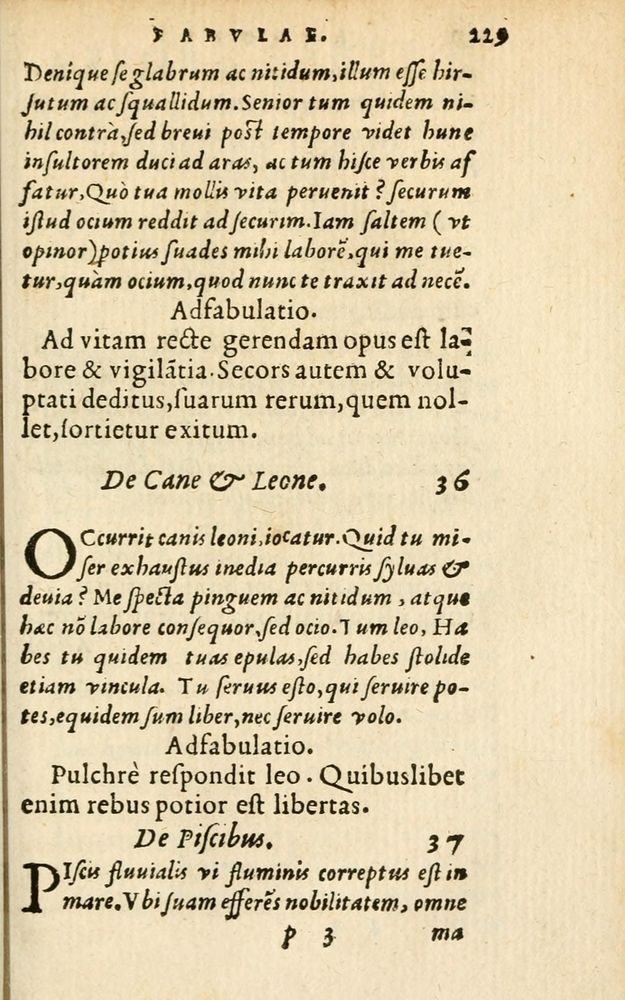 FABVLAE. 229
Deniq́ue ſe glabrum ac nitidum, illum eſſe hir-
ſutum ac ſquallidum. Senior tum quidem ni-
hil contrà, ſed breui poſt tempore videt hunc
inſultorem duci ad aras, ac tum hiſce verbis af
fatur, Quò tua mollis vita peruenit? ſecurum
iſtud ocium reddit ad ſecurim. Iam ſaltem (vt
opinor) potius ſuades mihi laborē, qui me tue-
tur, quàm ocium, quod nunc te traxit ad necē.
Adfabulatio.
Ad vitam recte gerendam opus eſt la-
bore & vigilātia. Secors autem & volu-
ptati deditus, ſuarum rerum, quem nol-
let, ſortietur exitum.
De Cane & Leone. 36
OCcurrit canis leoni, iocatur. Quid tu mi-
ſer exhauſtus inedia percurris ſyluas &
deuia? Me ſpecta pinguem ac nitidum, atque
hæc nō labore conſequor, ſed ocio. Tum leo, Ha
bes tu quidem tuas epulas, ſed habes ſtolide
etiam vincula. Tu ſeruus eſto, qui ſeruire po-
tes, equidem ſum liber, nec ſeruire volo.
Adfabulatio.
Pulchrè reſpondit leo. Quibuslibet
enim rebus potior eſt libertas.
De Piſcibus. 37
PIſcis fluuialis vi fluminis correptus eſt in
mare. Vbi ſuam efferēs nobilitatem, omne
p 3 ma